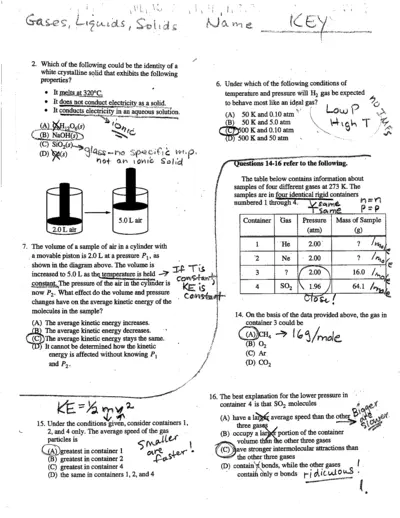 Gases, Liquids, Solids Name KEY
2. Which of the following could be the identity of a
white crystalline solid that exhibits the following
properties?
• It melts at 320°C.
• It does not conduct electricity as a solid.
• It conducts electricity in an aqueous solution.
ionic
(B) NaOH(s)
(C) SiO₂(s) → glass - no specific m.p.
not an ionic solid
2.0 L air
5.0 L air
7. The volume of a sample of air in a cylinder with
a movable piston is 2.0 L at a pressure P₁, as
shown in the diagram above. The volume is
increased to 5.0 L as the temperature is held
constant. The pressure of the air in the cylinder is
now P₂. What effect do the volume and pressure
changes have on the average kinetic energy of the
molecules in the sample?
→ If T is
constant
KE is
constant
(A) The average kinetic energy increases.
(B) The average kinetic energy decreases.
(C) The average kinetic energy stays the same.
(D) It cannot be determined how the kinetic
energy is affected without knowing P₁
and P₂.
KE = ½mv²
15. Under the conditions given, consider containers 1,
2, and 4 only. The average speed of the gas
particles is
(A) greatest in container 1
(B) greatest in container 2
(C) greatest in container 4
(D) the same in containers 1, 2, and 4
smaller
are
faster!
6. Under which of the following conditions of
temperature and pressure will H₂ gas be expected
to behave most like an ideal gas?
(A) 50 K and 0.10 atm
(B) 50 K and 5.0 atm
(C) 500 K and 0.10 atm
(D) 500 K and 50 atm
Low P
High T
no IMFs
Questions 14-16 refer to the following.
The table below contains information about
samples of four different gases at 273 K. The
samples are in four identical rigid containers
numbered 1 through 4.
V same
T same
n = n
P = P
Container Gas Pressure (atm) Mass of Sample (g)
1 He 2.00 ? /mole
2 Ne 2.00 ? /mole
3 ? 2.00 16.0 /mole
4 SO₂ 1.96 64.1 /mole
Close!
14. On the basis of the data provided above, the gas in
container 3 could be
(A) CH₄ → 16g/mole
(B) O₂
(C) Ar
(D) CO₂
16. The best explanation for the lower pressure in
container 4 is that SO₂ molecules
(A) have a larger average speed than the other
three gases
Bigger
are
slower
(B) occupy a larger portion of the container
volume than the other three gases
(C) have stronger intermolecular attractions than
the other three gases
(D) contain π bonds, while the other gases
contain only σ bonds ridiculous!
1.